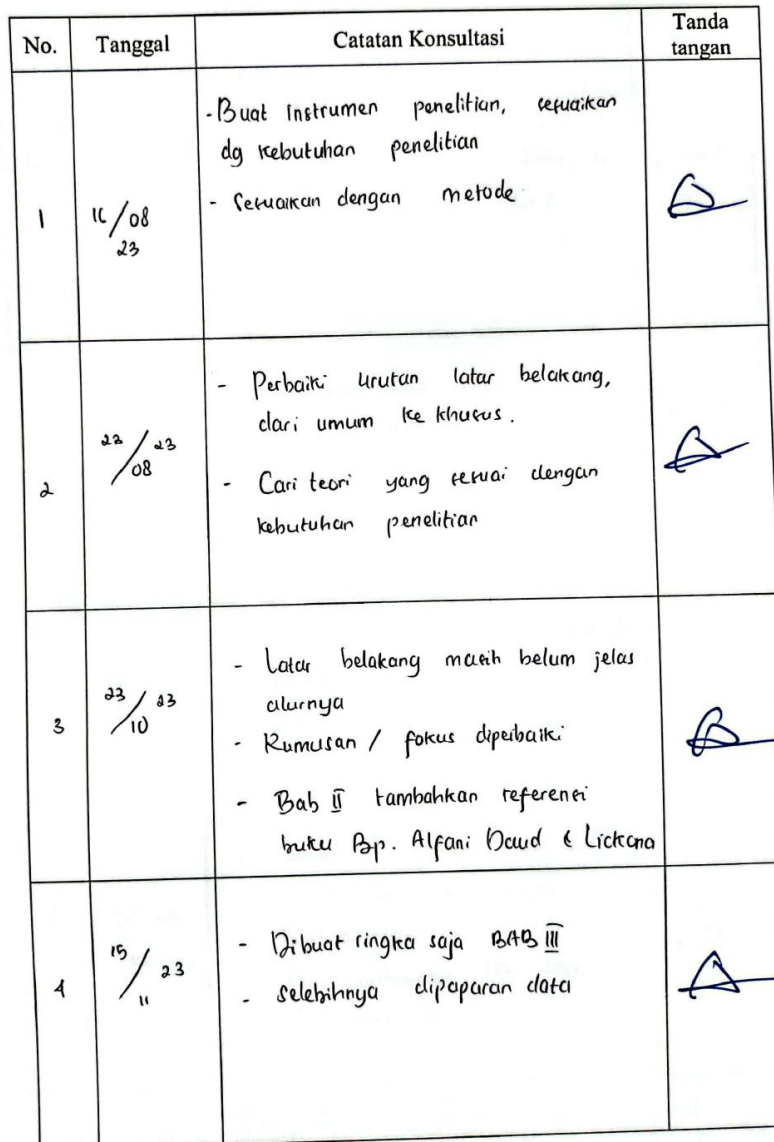 No. Tanggal Catatan Konsultasi Tanda tangan
1
16/08
23
- Buat instrumen penelitian, sesuaikan
dg kebutuhan penelitian
- Sesuaikan dengan metode
2
23/08 23
- Perbaiki urutan latar belakang,
dari umum ke khusus.
- Cari teori yang sesuai dengan
kebutuhan penelitian
3
23/10 23
- Latar belakang masih belum jelas
alurnya
- Rumusan / fokus diperbaiki
- Bab II tambahkan referensi
buku Bp. Alfani Daud & Lickona
4
15/11 23
- Dibuat ringka saja BAB III
- selebihnya dipaparan data